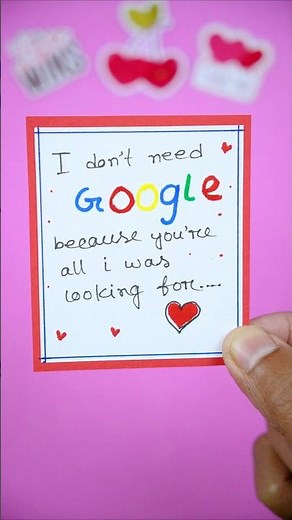 I don't need
Google
because you're
all i was
looking for....